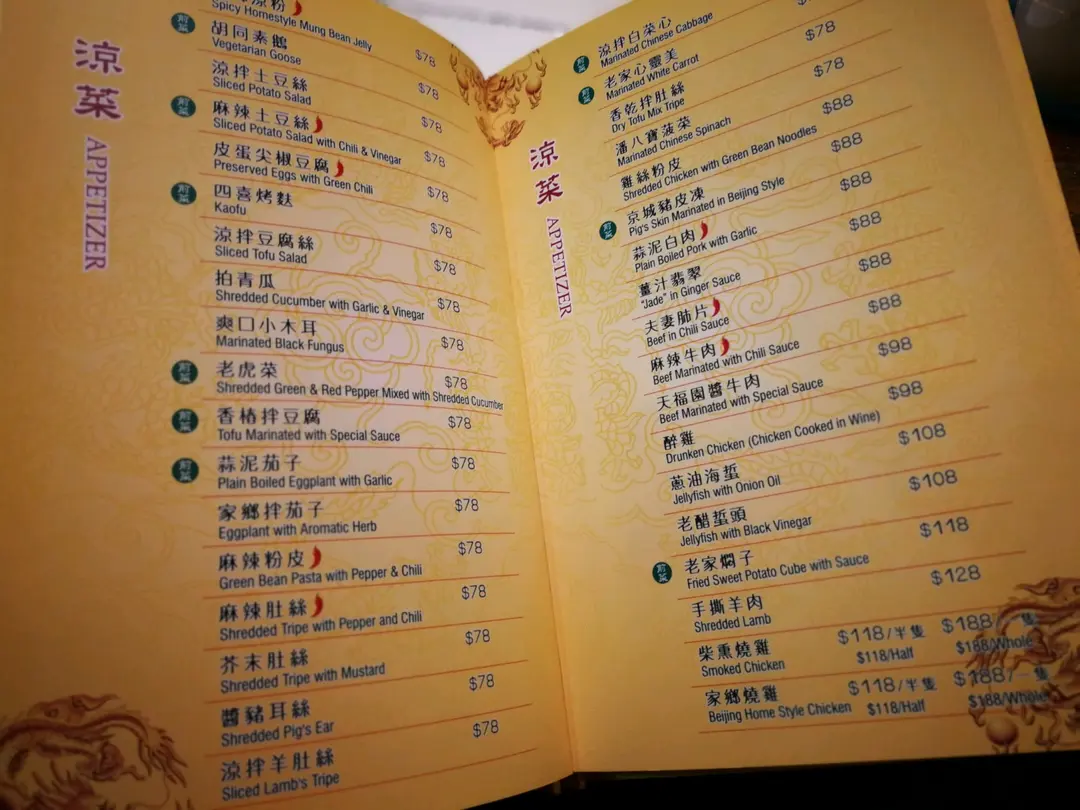 涼菜
APPETIZER
涼粉
Spicy Homestyle Mung Bean Jelly $78
胡同素鵝
Vegetarian Goose $78
涼拌土豆絲
Sliced Potato Salad $78
麻辣土豆絲
Sliced Potato Salad with Chili & Vinegar $78
皮蛋尖椒豆腐
Preserved Eggs with Green Chili $78
四喜烤麩
Kaofu $78
涼拌豆腐絲
Sliced Tofu Salad $78
拍青瓜
Shredded Cucumber with Garlic & Vinegar $78
爽口小木耳
Marinated Black Fungus $78
老虎菜
Shredded Green & Red Pepper Mixed with Shredded Cucumber $78
香椿拌豆腐
Tofu Marinated with Special Sauce $78
蒜泥茄子
Plain Boiled Eggplant with Garlic $78
家鄉拌茄子
Eggplant with Aromatic Herb $78
麻辣粉皮
Green Bean Pasta with Pepper & Chili $78
麻辣肚絲
Shredded Tripe with Pepper and Chili $78
芥末肚絲
Shredded Tripe with Mustard $78
醬豬耳絲
Shredded Pig's Ear $78
涼拌羊肚絲
Sliced Lamb's Tripe $78
涼菜
APPETIZER
涼拌白菜心
Marinated Chinese Cabbage
老家心靈美
Marinated White Carrot
香乾拌肚絲
Dry Tofu Mix Tripe $78
潘八寶菠菜
Marinated Chinese Spinach $78
雞絲粉皮
Shredded Chicken with Green Bean Noodles $88
京城豬皮凍
Pig's Skin Marinated in Beijing Style $88
蒜泥白肉
Plain Boiled Pork with Garlic $88
薑汁翡翠
"Jade" in Ginger Sauce $88
夫妻肺片
Beef in Chili Sauce $88
麻辣牛肉
Beef Marinated with Chili Sauce $88
天福園醬牛肉
Beef Marinated with Special Sauce $98
醉雞
Drunken Chicken (Chicken Cooked in Wine) $98
蔥油海蜇
Jellyfish with Onion Oil $108
老醋蜇頭
Jellyfish with Black Vinegar $108
老家燜子
Fried Sweet Potato Cube with Sauce $118
手撕羊肉
Shredded Lamb $128
柴熏燒雞 $118/半隻 $188/一隻
Smoked Chicken $118/Half $188/Whole
家鄉燒雞 $118/半隻 $188/一隻
Beijing Home Style Chicken $118/Half $188/Whole